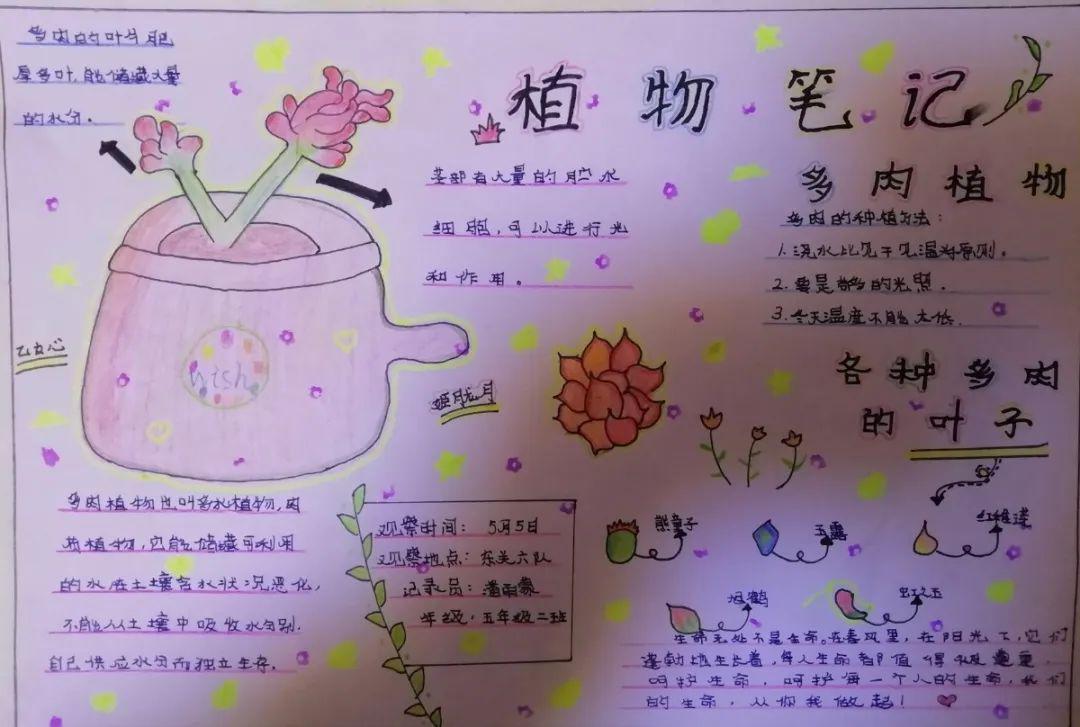 多肉的叶片肥
厚多叶，能储藏大量
的水分。
植物笔记
茎部有大量的贮水
细胞，可以进行光
和作用。
多肉植物
多肉的种植方法：
1.浇水比见干见湿为原则。
2.要是够多的光照。
3.冬天温度不能太低.
乙女心
htsh
姬胧月
各种多肉
的叶子
熊童子
玉露
红稚莲
虹之玉
多肉植物也叫多水植物，肉
质植物，它能储藏可利用
的水在土壤含水状况恶化，
不能从土壤中吸收水分别.
自己供应水分而独立生存.
观察时间：5月5日
观察地点：东关六队
记录员：潘雨
年级：五年级二班
生命无处不是生命。在春风里，在阳光下，它们
蓬勃地生长着，每人生命都值得被尊重.
呵护生命，呵护每一个人的生命，我们
的生命，从你我做起！